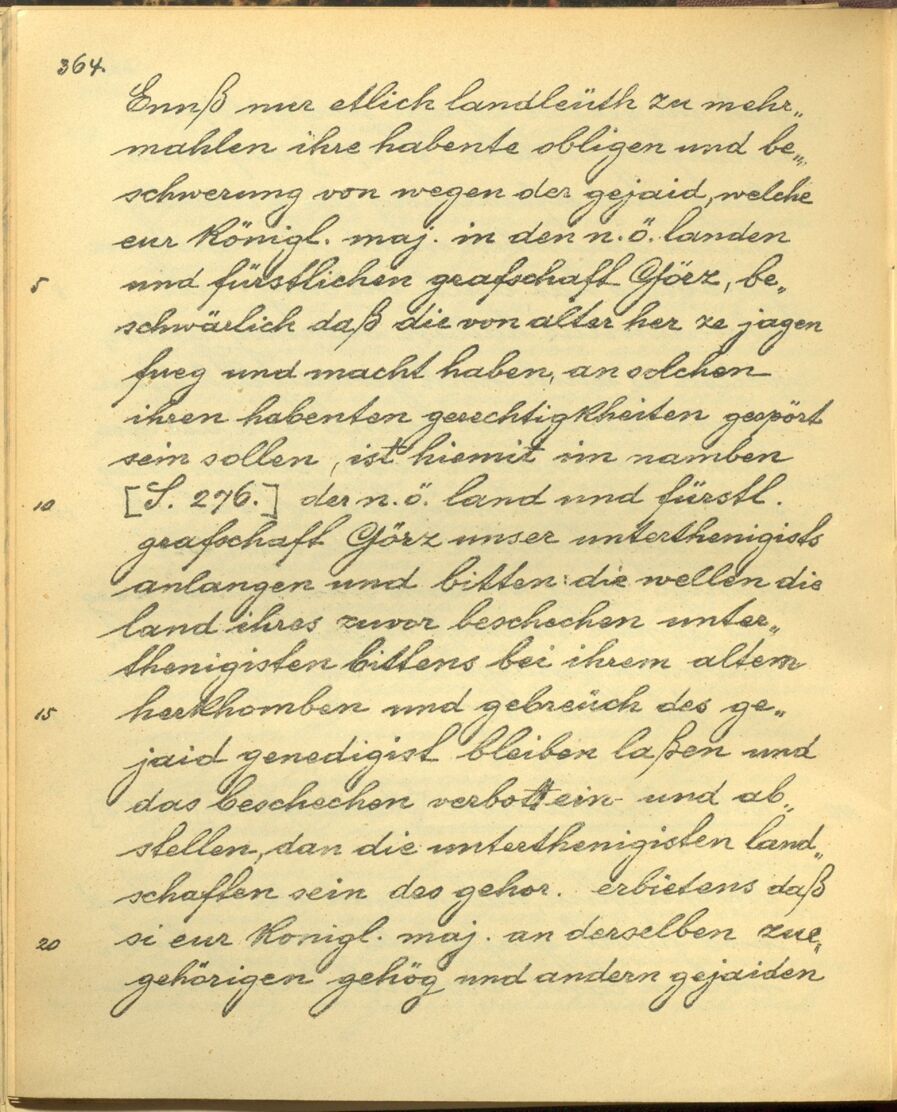 364.
Ennß nur etlich landleüth zu mehr„
mahlen ihre habente obligen und be„
schwerung von wegen der gejaid, welche
eur Königl. maj. in den n. ö. landen
5 und fürstlichen grafschaft Görz, be„
schwärlich daß die von alter her ze jagen
fueg und macht haben, an solchen
ihren habenten gerechtigkheiten gespört
sein sollen, ist hiemit im namben
10 [S. 276.] der n. ö. land und fürstl.
grafschaft Görz unser unterthenigists
anlangen und bitten: die wellen die
land ihres zuvor beschechen unter„
thenigisten bittens bei ihrem altem
15 herkhomben und gebreüch des ge„
jaid genedigist bleiben laßen und
das beschechen verbott ein- und ab„
stellen, dan die unterthenigisten land„
schaften sein des gehor. erbietens daß
20 si eur Konigl. maj. an derselben zue„
gehörigen gehög und andern gejaiden